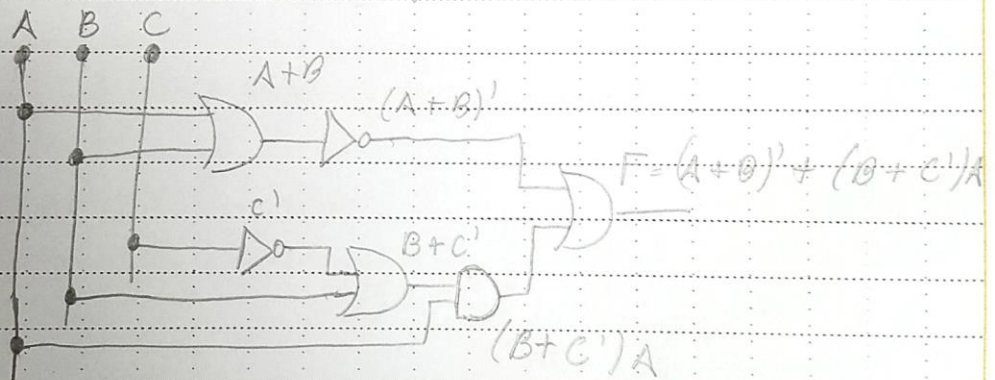 A B C
A+B
(A+B)'
F=(A+B)'+(B+C')A
C'
B+C'
(B+C')A